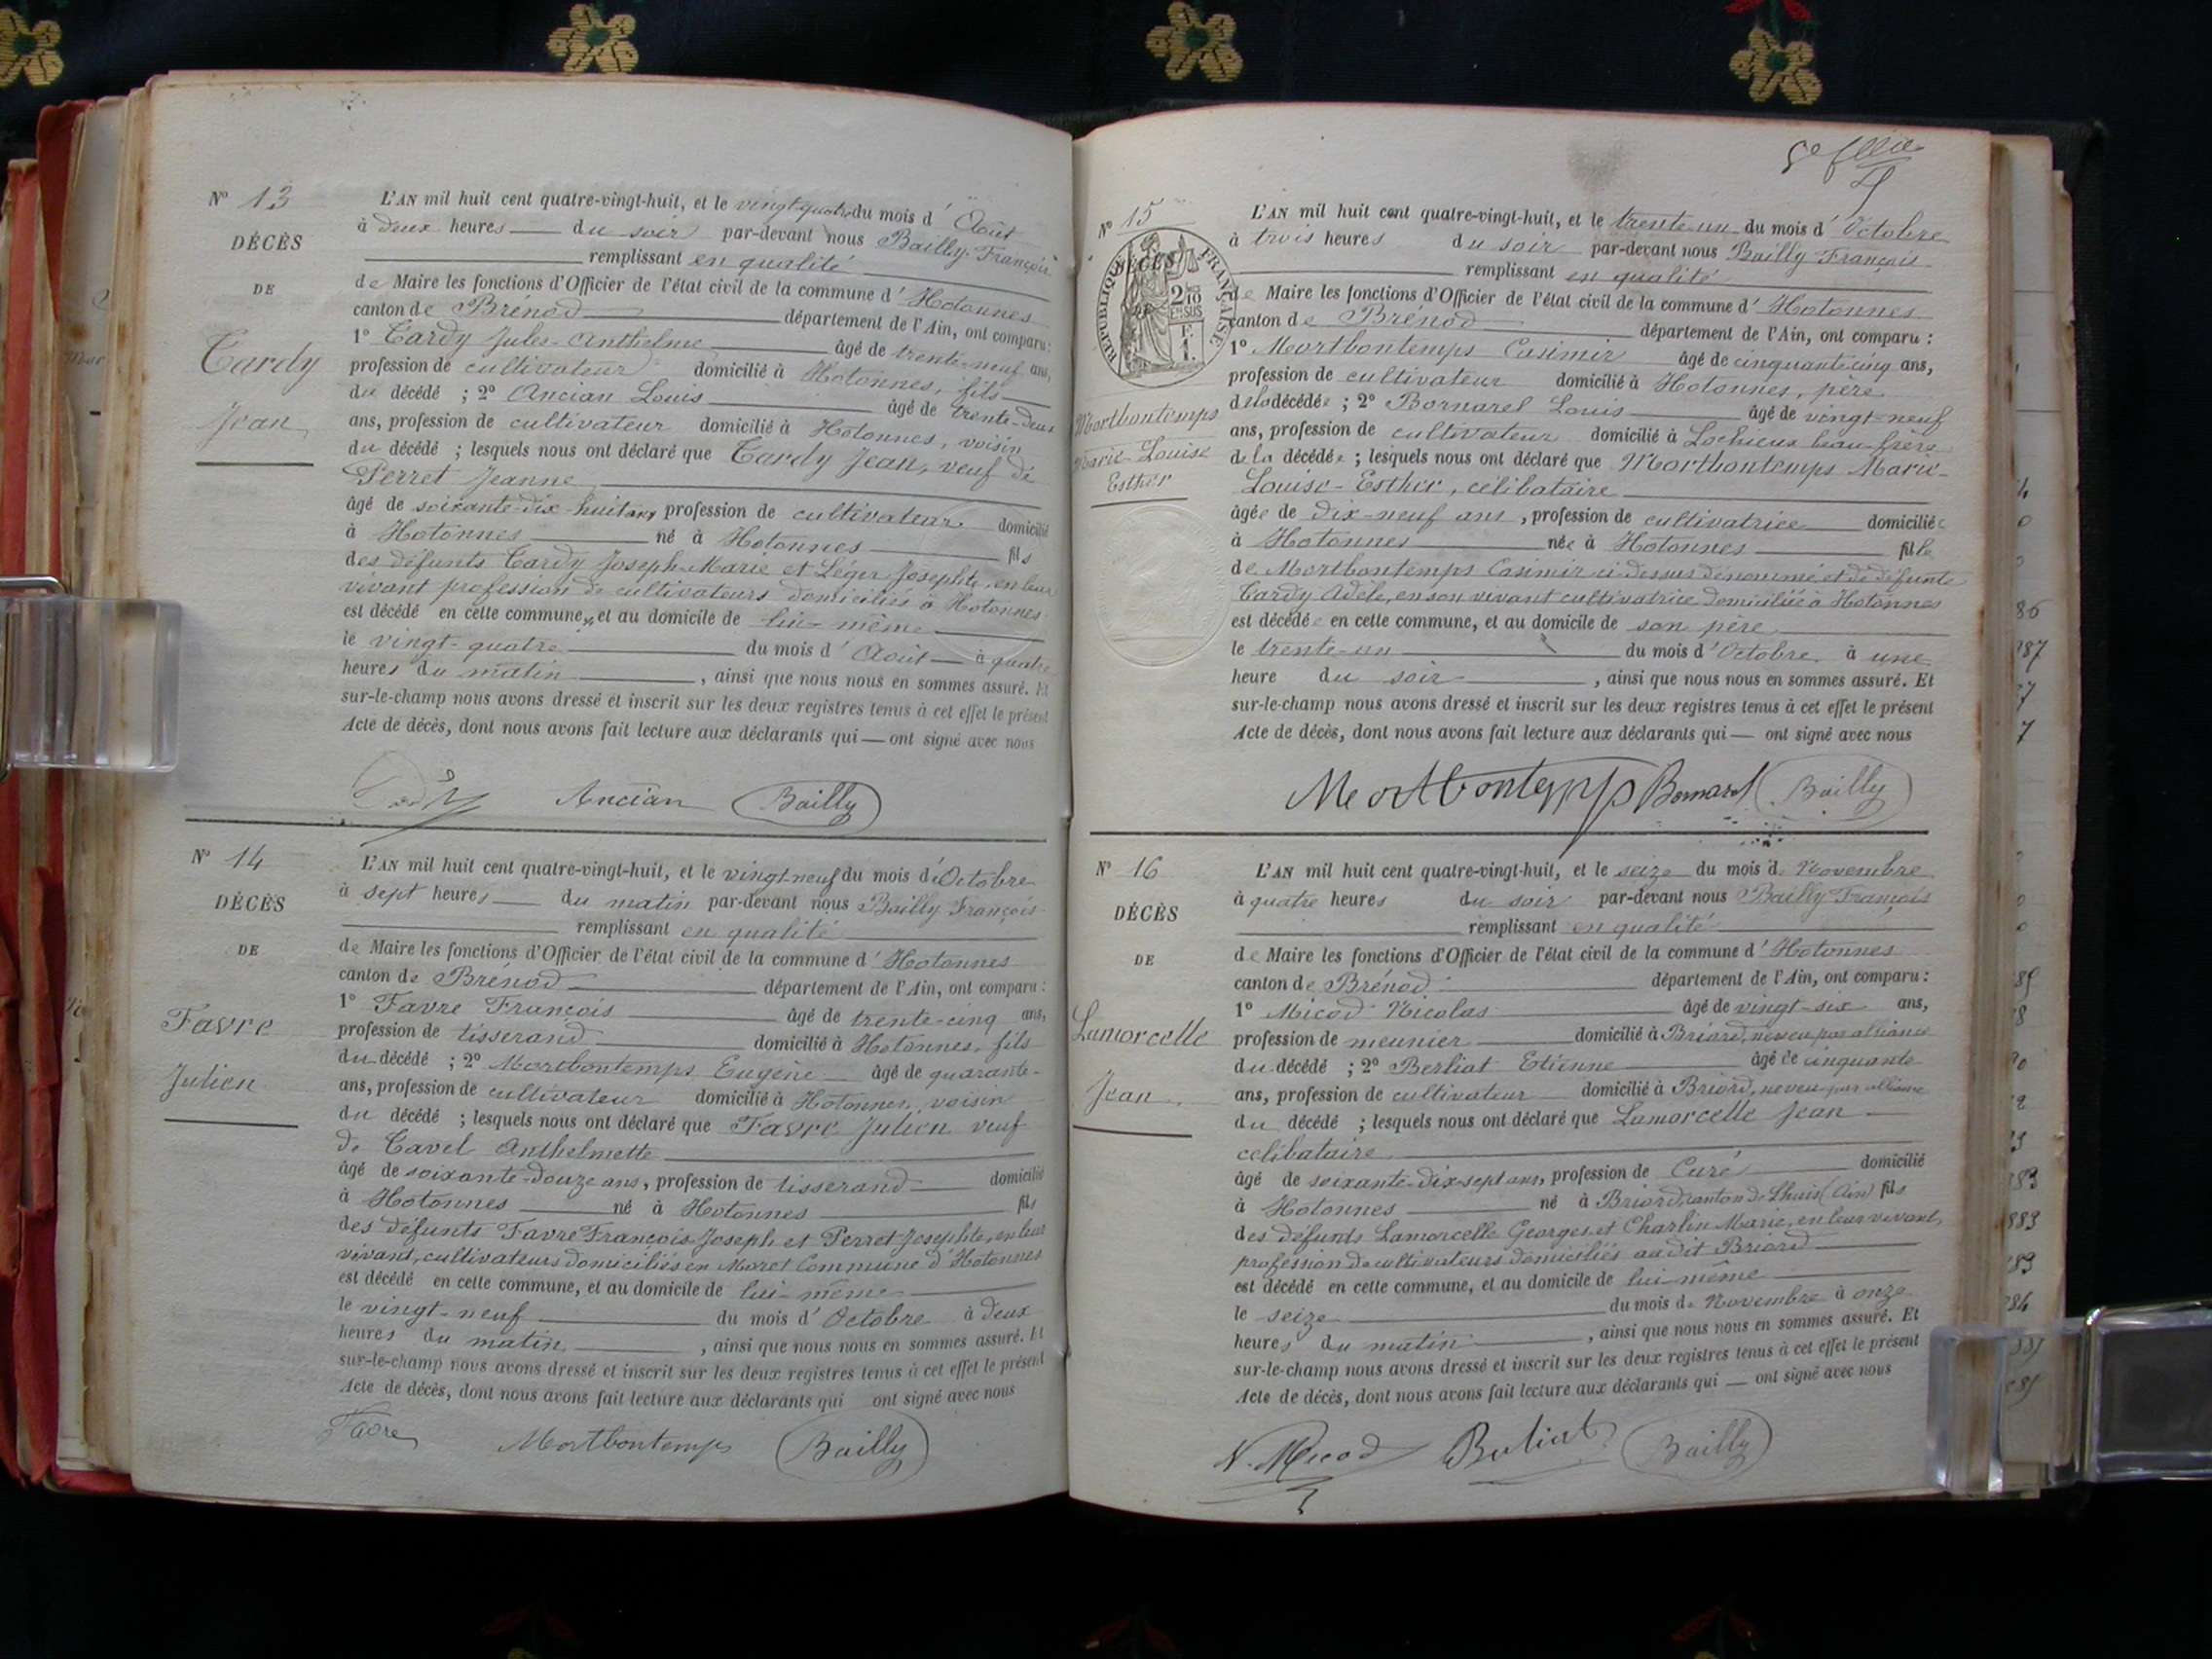 N° 13
DÉCÈS
DE
Tardy
Jean
L'AN mil huit cent quatre-vingt-huit, et le vingt-quatre du mois d'Août
à deux heures du soir par-devant nous Bailly François
remplissant en qualité
de Maire les fonctions d'Officier de l'état civil de la commune d'Hotonnes
canton de Brénod département de l'Ain, ont comparu :
1° Tardy Jules-Anthelme âgé de trente-neuf ans,
profession de cultivateur domicilié à Hotonnes, fils
du décédé ; 2° Ancian Louis âgé de trente-deux
ans, profession de cultivateur domicilié à Hotonnes, voisin
du décédé ; lesquels nous ont déclaré que Tardy Jean, veuf de
Perret Jeanne
âgé de soixante-dix-huit ans, profession de cultivateur domicilié
à Hotonnes né à Hotonnes fils
des défunts Tardy Joseph-Marie et Léger Josephte, en leur
vivant profession de cultivateurs domiciliés à Hotonnes
est décédé en cette commune, et au domicile de lui-même
le vingt-quatre du mois d'Août à quatre
heures du matin, ainsi que nous nous en sommes assuré. Et
sur-le-champ nous avons dressé et inscrit sur les deux registres tenus à cet effet le présent
Acte de décès, dont nous avons fait lecture aux déclarants qui — ont signé avec nous
Ancian Bailly
N° 14
DÉCÈS
DE
Favre
Julien
L'AN mil huit cent quatre-vingt-huit, et le vingt-neuf du mois d'Octobre
à sept heures du matin par-devant nous Bailly François
remplissant en qualité
de Maire les fonctions d'Officier de l'état civil de la commune d'Hotonnes
canton de Brénod département de l'Ain, ont comparu :
1° Favre François âgé de trente-cinq ans,
profession de tisserand domicilié à Hotonnes, fils
du décédé ; 2° Mortbontemps Eugène âgé de quarante-
ans, profession de cultivateur domicilié à Hotonnes, voisin
du décédé ; lesquels nous ont déclaré que Favre Julien veuf
de Cavel Anthelmette
âgé de soixante-douze ans, profession de tisserand domicilié
à Hotonnes né à Hotonnes fils
des défunts Favre François-Joseph et Perret Josephte, en leur
vivant, cultivateurs domiciliés en Moret Commune d'Hotonnes
est décédé en cette commune, et au domicile de lui-même
le vingt-neuf du mois d'Octobre à deux
heures du matin, ainsi que nous nous en sommes assuré. Et
sur-le-champ nous avons dressé et inscrit sur les deux registres tenus à cet effet le présent
Acte de décès, dont nous avons fait lecture aux déclarants qui ont signé avec nous
Favre Mortbontemps Bailly
N° 15
DÉCÈS
RÉPUBLIQUE FRANÇAISE
2/10 EN SUS
F. 1.
Mortbontemps
Marie-Louise
Esther
L'AN mil huit cent quatre-vingt-huit, et le trente-un du mois d'Octobre
à trois heures du soir par-devant nous Bailly François
remplissant en qualité
de Maire les fonctions d'Officier de l'état civil de la commune d'Hotonnes
canton de Brénod département de l'Ain, ont comparu :
1° Mortbontemps Casimir âgé de cinquante-cinq ans,
profession de cultivateur domicilié à Hotonnes, père
de la décédée ; 2° Bornarel Louis âgé de vingt-neuf
ans, profession de cultivateur domicilié à Lochieux beau-frère
de la décédée ; lesquels nous ont déclaré que Mortbontemps Marie-
Louise-Esther, célibataire
âgée de dix-neuf ans, profession de cultivatrice domiciliée
à Hotonnes née à Hotonnes fille
de Mortbontemps Casimir ci-dessus dénommé et de défunte
Tardy Adèle, en son vivant cultivatrice domiciliée à Hotonnes
est décédée en cette commune, et au domicile de son père
le trente-un du mois d'Octobre à une
heure du soir, ainsi que nous nous en sommes assuré. Et
sur-le-champ nous avons dressé et inscrit sur les deux registres tenus à cet effet le présent
Acte de décès, dont nous avons fait lecture aux déclarants qui — ont signé avec nous
Mortbontemps Bornarel Bailly
N° 16
DÉCÈS
DE
Lamorcelle
Jean
L'AN mil huit cent quatre-vingt-huit, et le seize du mois de Novembre
à quatre heures du soir par-devant nous Bailly François
remplissant en qualité
de Maire les fonctions d'Officier de l'état civil de la commune d'Hotonnes
canton de Brénod département de l'Ain, ont comparu :
1° Micod Nicolas âgé de vingt-six ans,
profession de meunier domicilié à Briord, neveu par alliance
du décédé ; 2° Berliat Etienne âgé de cinquante
ans, profession de cultivateur domicilié à Briord, neveu par alliance
du décédé ; lesquels nous ont déclaré que Lamorcelle Jean
célibataire
âgé de soixante-dix-sept ans, profession de Curé domicilié
à Hotonnes né à Briord, canton de Lhuis (Ain) fils
des défunts Lamorcelle Georges et Charlin Marie, en leur vivant,
profession de cultivateurs domiciliés au dit Briord
est décédé en cette commune, et au domicile de lui-même
le seize du mois de Novembre à onze
heures du matin, ainsi que nous nous en sommes assuré. Et
sur-le-champ nous avons dressé et inscrit sur les deux registres tenus à cet effet le présent
Acte de décès, dont nous avons fait lecture aux déclarants qui — ont signé avec nous
N. Micod Berliat Bailly